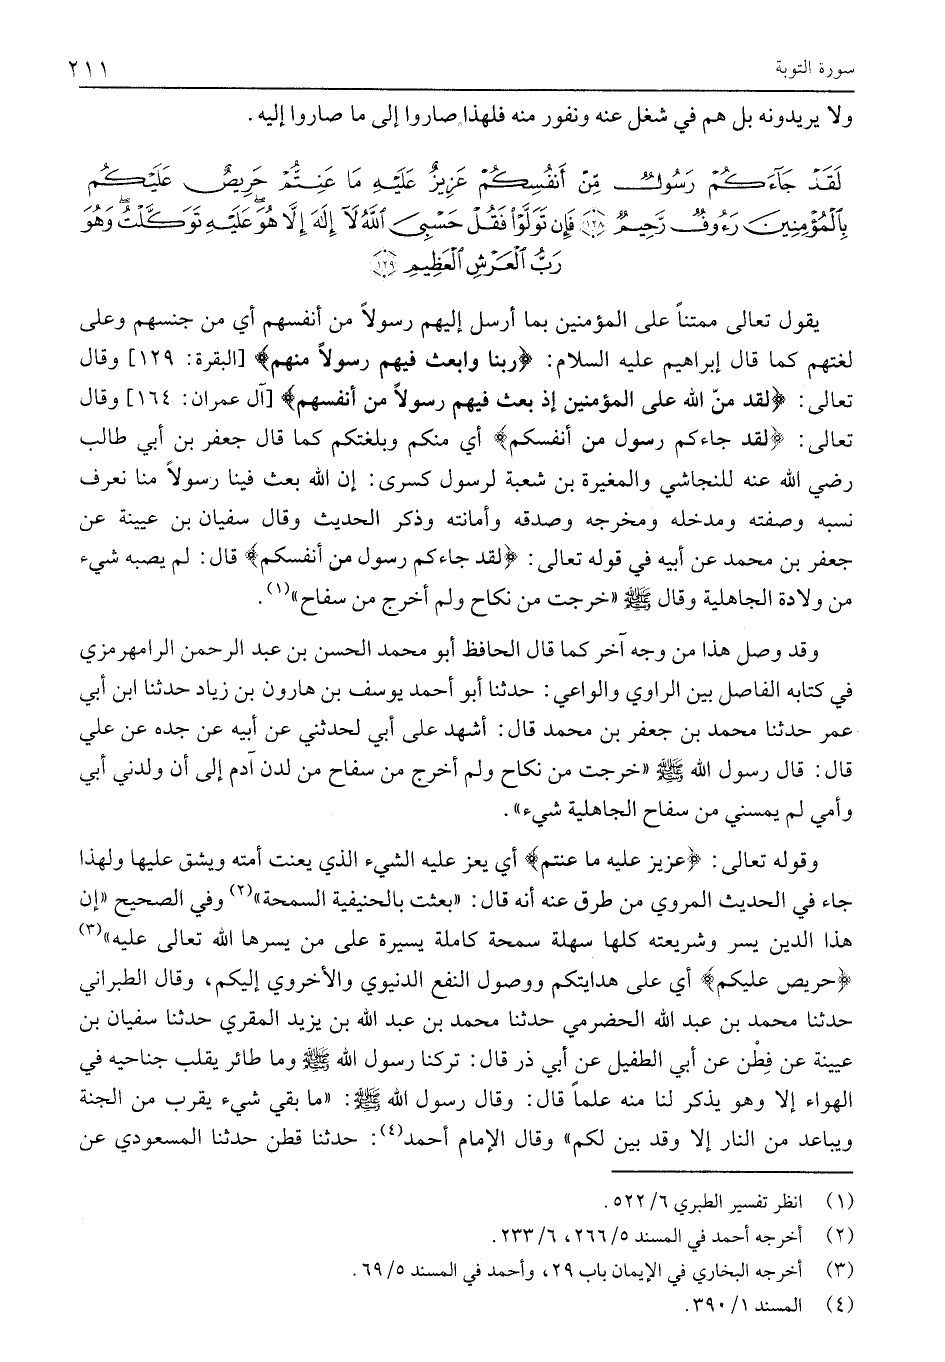 سورة التوبة ٢١١
ولا يريدونه بل هم في شغل عنه ونفور منه فلهذا صاروا إلى ما صاروا إليه.
لَقَدْ جَآءَكُمْ رَسُولٌ مِّنْ أَنفُسِكُمْ عَزِيزٌ عَلَيْهِ مَا عَنِتُّمْ حَرِيصٌ عَلَيْكُم
بِٱلْمُؤْمِنِينَ رَءُوفٌ رَّحِيمٌ ﴿١٢٨﴾ فَإِن تَوَلَّوْا۟ فَقُلْ حَسْبِىَ ٱللَّهُ لَآ إِلَٰهَ إِلَّا هُوَ ۖ عَلَيْهِ تَوَكَّلْتُ ۖ وَهُوَ
رَبُّ ٱلْعَرْشِ ٱلْعَظِيمِ ﴿١٢٩﴾
يقول تعالى ممتناً على المؤمنين بما أرسل إليهم رسولاً من أنفسهم أي من جنسهم وعلى
لغتهم كما قال إبراهيم عليه السلام: ﴿ربنا وابعث فيهم رسولاً منهم﴾ [البقرة: ١٢٩] وقال
تعالى: ﴿لقد منّ الله على المؤمنين إذ بعث فيهم رسولاً من أنفسهم﴾ [آل عمران: ١٦٤] وقال
تعالى: ﴿لقد جاءكم رسول من أنفسكم﴾ أي منكم وبلغتكم كما قال جعفر بن أبي طالب
رضي الله عنه للنجاشي والمغيرة بن شعبة لرسول كسرى: إن الله بعث فينا رسولاً منا نعرف
نسبه وصفته ومدخله ومخرجه وصدقه وأمانته وذكر الحديث وقال سفيان بن عيينة عن
جعفر بن محمد عن أبيه في قوله تعالى: ﴿لقد جاءكم رسول من أنفسكم﴾ قال: لم يصبه شيء
من ولادة الجاهلية وقال ﷺ «خرجت من نكاح ولم أخرج من سفاح»(١).
وقد وصل هذا من وجه آخر كما قال الحافظ أبو محمد الحسن بن عبد الرحمن الرامهرمزي
في كتابه الفاصل بين الراوي والواعي: حدثنا أبو أحمد يوسف بن هارون بن زياد حدثنا ابن أبي
عمر حدثنا محمد بن جعفر بن محمد قال: أشهد على أبي لحدثني عن أبيه عن جده عن علي
قال: قال رسول الله ﷺ «خرجت من نكاح ولم أخرج من سفاح من لدن آدم إلى أن ولدني أبي
وأمي لم يمسني من سفاح الجاهلية شيء».
وقوله تعالى: ﴿عزيز عليه ما عنتم﴾ أي يعز عليه الشيء الذي يعنت أمته ويشق عليها ولهذا
جاء في الحديث المروي من طرق عنه أنه قال: «بعثت بالحنيفية السمحة»(٢) وفي الصحيح «إن
هذا الدين يسر وشريعته كلها سهلة سمحة كاملة يسيرة على من يسرها الله تعالى عليه»(٣)
﴿حريص عليكم﴾ أي على هدايتكم ووصول النفع الدنيوي والأخروي إليكم، وقال الطبراني
حدثنا محمد بن عبد الله الحضرمي حدثنا محمد بن عبد الله بن يزيد المقري حدثنا سفيان بن
عيينة عن فِطْن عن أبي الطفيل عن أبي ذر قال: تركنا رسول الله ﷺ وما طائر يقلب جناحيه في
الهواء إلا وهو يذكر لنا منه علماً قال: وقال رسول الله ﷺ: «ما بقي شيء يقرب من الجنة
ويباعد من النار إلا وقد بين لكم» وقال الإمام أحمد(٤): حدثنا قطن حدثنا المسعودي عن
(١) انظر تفسير الطبري ٦/ ٥٢٢.
(٢) أخرجه أحمد في المسند ٥/ ٢٦٦، ٦/ ٢٣٣.
(٣) أخرجه البخاري في الإيمان باب ٢٩، وأحمد في المسند ٥/ ٦٩.
(٤) المسند ١/ ٣٩٠.